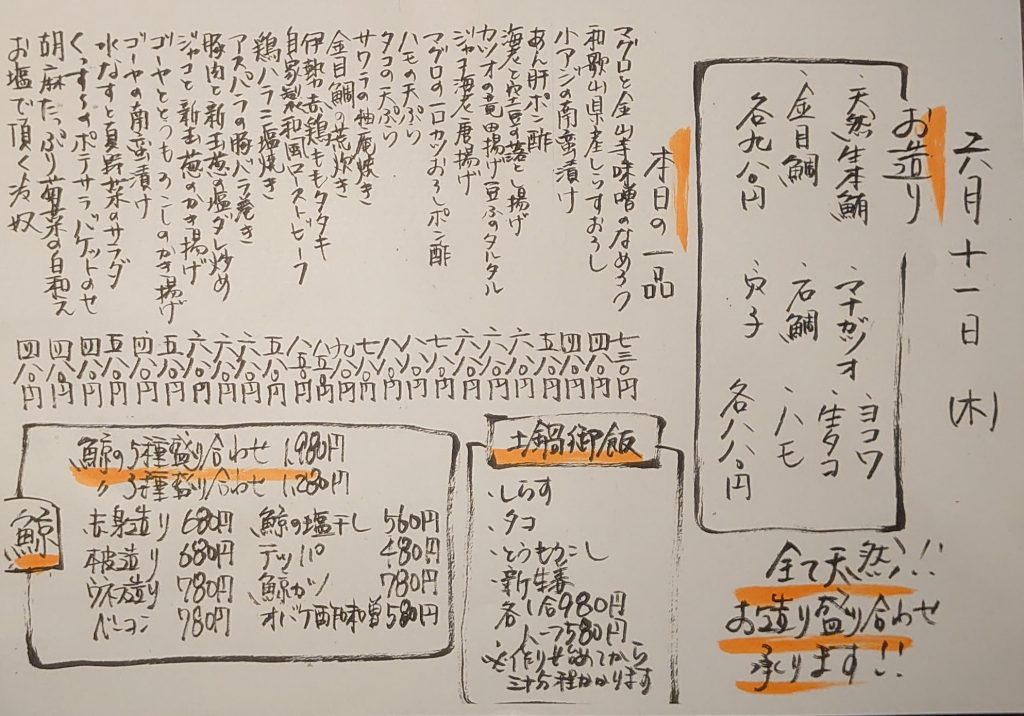 六月十一日(木)
お造り
・天然生本鮪 ・マナガツオ ・ヨコワ
・金目鯛 ・石鯛 ・生タコ
・穴子 ・ハモ
各九八〇円 各八八〇円
全て天然!!
お造り盛り合わせ
承ります!!
本日の一品
マグロと金山寺味噌のなめろう 七三〇円
和歌山県産しらすおろし 四八〇円
小アジの南蛮漬け 四八〇円
あん肝ポン酢 五八〇円
海老と空豆の落とし揚げ 六八〇円
カツオの竜田揚げ豆ふのタルタル 六八〇円
ジャコ海老唐揚げ 六八〇円
マグロの一口カツおろしポン酢 七八〇円
ハモの天ぷら 八八〇円
タコの天ぷら 八八〇円
サワラの柚庵焼き 七八〇円
金目鯛の荒炊き 九八〇円
伊勢赤鶏ももタタキ 八五〇円
自家製和風ローストビーフ 八五〇円
鶏ハラミ塩焼き 五八〇円
アスパラの豚バラ巻き 六八〇円
豚肉と新玉葱の塩ダレ炒め 六八〇円
ジャコと新玉葱のかき揚げ 六八〇円
ゴーヤととうもろこしのかき揚げ 五八〇円
ゴーヤの南蛮漬け 四八〇円
水なすと真野菜のサラダ 五八〇円
ポテサラバケットのせ 四八〇円
胡麻たっぷり菊菜の白和え 四八〇円
お塩で頂く冷奴 四八〇円
土鍋御飯
・しらす
・タコ
・とうもろこし
・新生姜
各一合980円
ハーフ580円
※作り始めてから
三十分程かかります
鯨
鯨の5種盛り合わせ 1,980円
〃 3種盛り合わせ 1,280円
赤身造り 680円 鯨の塩干し 560円
本皮造り 680円 テッパ 480円
ウネス造り 780円 鯨カツ 780円
ベーコン 780円 オバケ酢味噌 580円